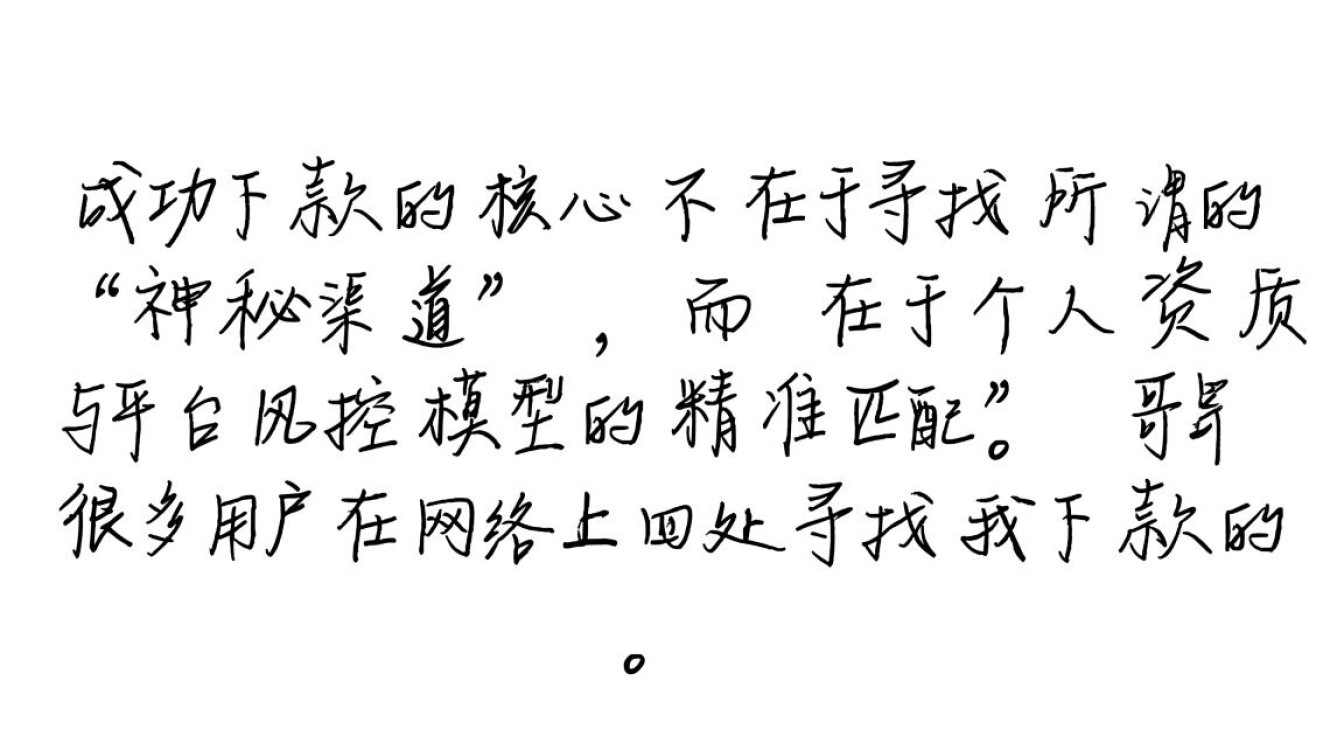 成功下款的核心不在于寻找所谓的
“神秘渠道”，而在于个人资质
与平台风控模型的精准匹配”。哥
很多用户在网络上四处寻找我下款的
。